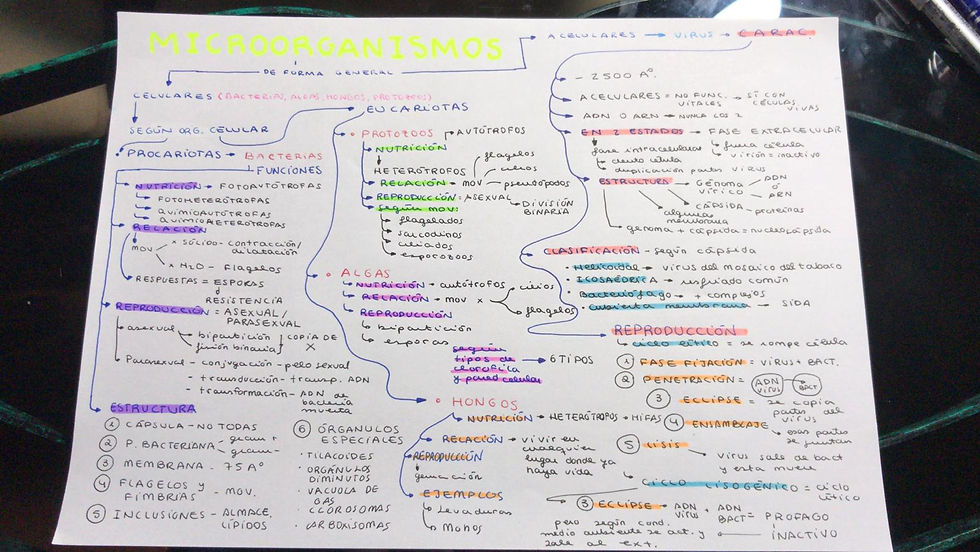 MICROORGANISMOS
DE FORMA GENERAL
CELULARES (BACTERIAS, ALGAS, HONGOS, PROTOZOOS)
SEGÚN ORG. CELULAR
• PROCARIOTAS → BACTERIAS
FUNCIONES
• NUTRICIÓN → FOTOAUTÓTROFAS
FOTOHETERÓTROFAS
QUIMIOAUTÓTROFAS
QUIMIOHETERÓTROFAS
RELACIÓN
MOV
x SÓLIDO - CONTRACCIÓN/
DILATACIÓN
x H2O - FLAGELOS
RESPUESTAS = ESPORAS
RESISTENCIA
REPRODUCCIÓN = ASEXUAL/
PARASEXUAL
asexual
bipartición
fusión binaria
COPIA DE
X
Parasexual - conjugación - pelo sexual
- transducción - transp. ADN
- transformación - ADN de
bacteria
muerta
ESTRUCTURA
① CÁPSULA - NO TODAS
② P. BACTERIANA
gram +
gram -
③ MEMBRANA - 75 Aº
④ FLAGELOS Y
FIMBRIAS - MOV.
⑤ INCLUSIONES - ALMACE,
LÍPIDOS
⑥ ÓRGANULOS
ESPECIALES
• TILACOIDES
• ORGÁNULOS
DIMINUTOS
• VACUOLA DE
GAS
• CLOROSOMAS
• CARBOXISOMAS
EUCARIOTAS
• PROTOZOOS
AUTÓTROFOS
NUTRICIÓN
HETERÓTROFOS
RELACIÓN → MOV
flagelos
cilios
pseudópodos
REPRODUCCIÓN = ASEXUAL
DIVISIÓN
BINARIA
según mov:
flagelados
sarcodinos
ciliados
esporozoos
• ALGAS
NUTRICIÓN → autótrofos
RELACIÓN → mov x
cilios
flagelos
REPRODUCCIÓN
bipartición
esporas
según
tipos de
clorofila
y pared celular
→ 6 TIPOS
• HONGOS
NUTRICIÓN → HETERÓTROFOS → HIFAS
RELACIÓN → vivir en
cualquier
lugar donde ya
haya vida
REPRODUCCIÓN
EJEMPLOS
Levaduras
Mohos
ACELULARES → VIRUS → CARAC.
- 2500 Aº.
ACELULARES = NO FUNC.
VITALES → SÍ CON
CÉLULAS
VIVAS
ADN O ARN → NUNCA LOS 2
EN 2 ESTADOS → FASE EXTRACELULAR
fuera célula
virión = inactivo
fase intracelular
dentro célula
duplicación partes virus
ESTRUCTURA
GENOMA
VÍRICO
ADN
Ó
ARN
CÁPSIDA → proteínas
algunas
membrana
genoma + cápsida = nucleocápsida
CLASIFICACIÓN - según cápsida
• Helicoidal → virus del mosaico del tabaco
• ICOSAÉDRICA → resfriado común
• Bacteriófago → + complejos
• cubierta membrana → SIDA
REPRODUCCIÓN
ciclo lítico = se rompe célula
① FASE FIJACIÓN = VIRUS + BACT.
② PENETRACIÓN =
ADN
VIRUS
BACT
③ ECLIPSE = se copia
partes del
virus
④ ENSAMBLAJE
esas partes
se juntan
⑤ LISIS
virus sale de bact
y esta muere
CICLO LISOGÉNICO = ciclo
lítico
③ ECLIPSE →
ADN
VIRUS + ADN
BACT = PROFAGO
INACTIVO
pero según cond.
medio ambiente se act. y
sale al ext.